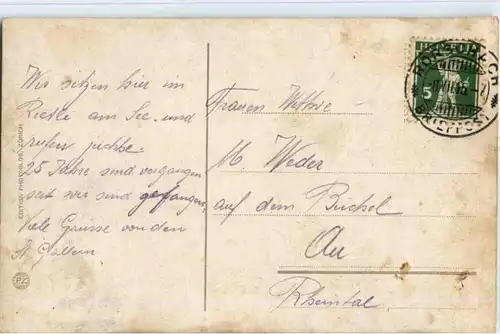 Wir sitzen hier im
Riedle am See und
rufen juchhe.
25 Jahre sind vergangen
seit wir sind gefangen.
Viele Grüsse von den
St. Gallern
Frauen Wittwe
M. Weder
auf dem Büchel
Au
Rheintal
EDITION PHOTOGLOB, ZÜRICH
PZ
5
RORSCHACH
BRIEFPOST